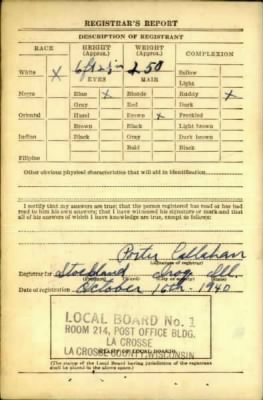 REGISTRAR'S REPORT
DESCRIPTION OF REGISTRANT
RACE HEIGHT (Approx.) WEIGHT (Approx.) COMPLEXION
White X 6 ft 2 in 250 Sallow
EYES HAIR Light
Negro Blue X Blonde Ruddy X
Gray Red Dark
Oriental Hazel Brown X Freckled
Brown Black Light brown
Indian Black Gray Dark brown
Bald Black
Filipino
Other obvious physical characteristics that will aid in identification
I certify that my answers are true; that the person registered has read or has had
read to him his own answers; that I have witnessed his signature or mark and that
all of his answers of which I have knowledge are true, except as follows:
Porter Callahan
(Signature of registrar)
Registrar for Stockland Iroq Ill.
Date of registration October 16th 1940
LOCAL BOARD No. 1
ROOM 214, POST OFFICE BLDG.
LA CROSSE
LA CROSSE COUNTY, WISCONSIN
STAMP OF LOCAL BOARD
(The stamp of the Local Board having jurisdiction of the registrant
shall be placed in the above space.)